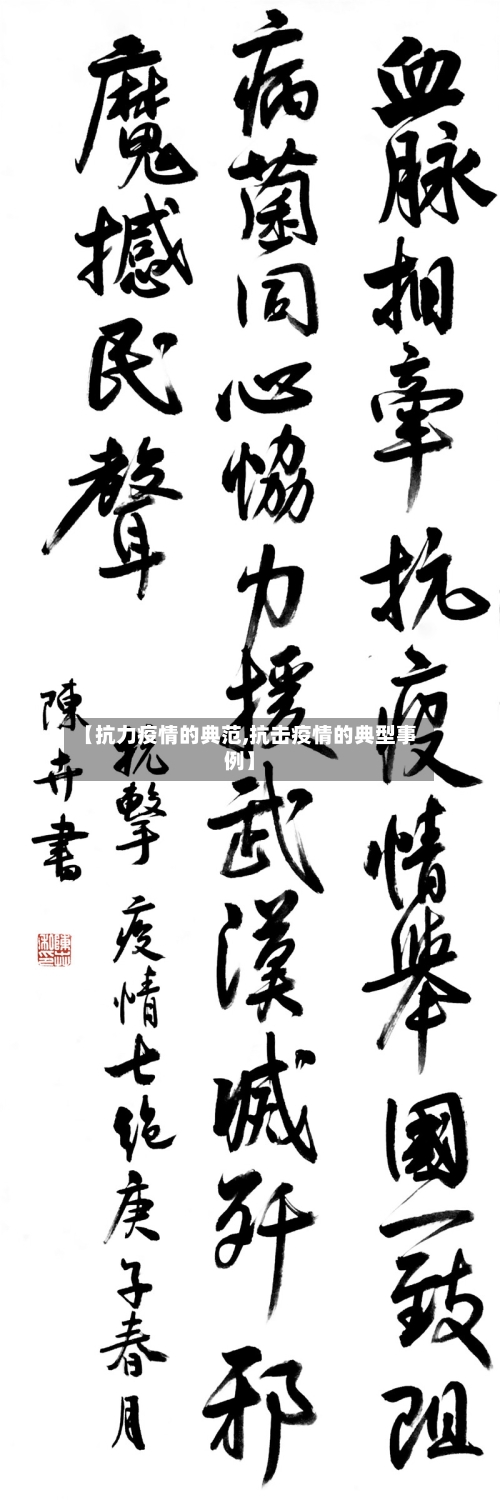 血脉相牽抗疫情舉國一致阻
病菌同心恊力援武漢滅歼邪
魔撼民聲
抗擊疫情七绝庚子春月
陳卉書
【抗力疫情的典范,抗击疫情的典型事
例】